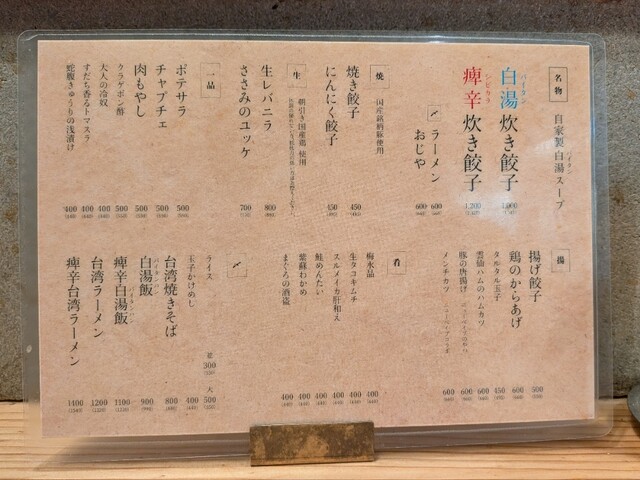 名物
自家製白湯スープ
パイタン
白湯 炊き餃子 1,000
シビカラ
痺辛 炊き餃子 1,200
〆
ラーメン 600
おじや 600
焼
国産銘柄豚使用
焼き餃子 450
にんにく餃子 450
生
朝引き国産鶏使用
生レバニラ 800
ささみのユッケ 700
一品
ポテサラ 500
チャプチェ 500
肉もやし 500
クラゲポン酢 500
大人の冷奴 400
すだち香るトマスラ 400
蛇腹きゅうりの浅漬け 400
揚
揚げ餃子 500
鶏のからあげ 600
タルタル玉子 450
雲仙ハムのハムカツ 600
豚の唐揚げ 600
メンチカツ 600
肴
梅水晶 400
生タコキムチ 400
スルメイカ肝和え 400
鮭めんたい 400
紫蘇わかめ 400
まぐろの酒盗 400
〆
ライス 300 大 500
玉子かけめし 400
台湾焼きそば 800
パイタンハン
白湯飯 900
痺辛白湯飯 1100
台湾ラーメン 1200
痺辛台湾ラーメン 1400